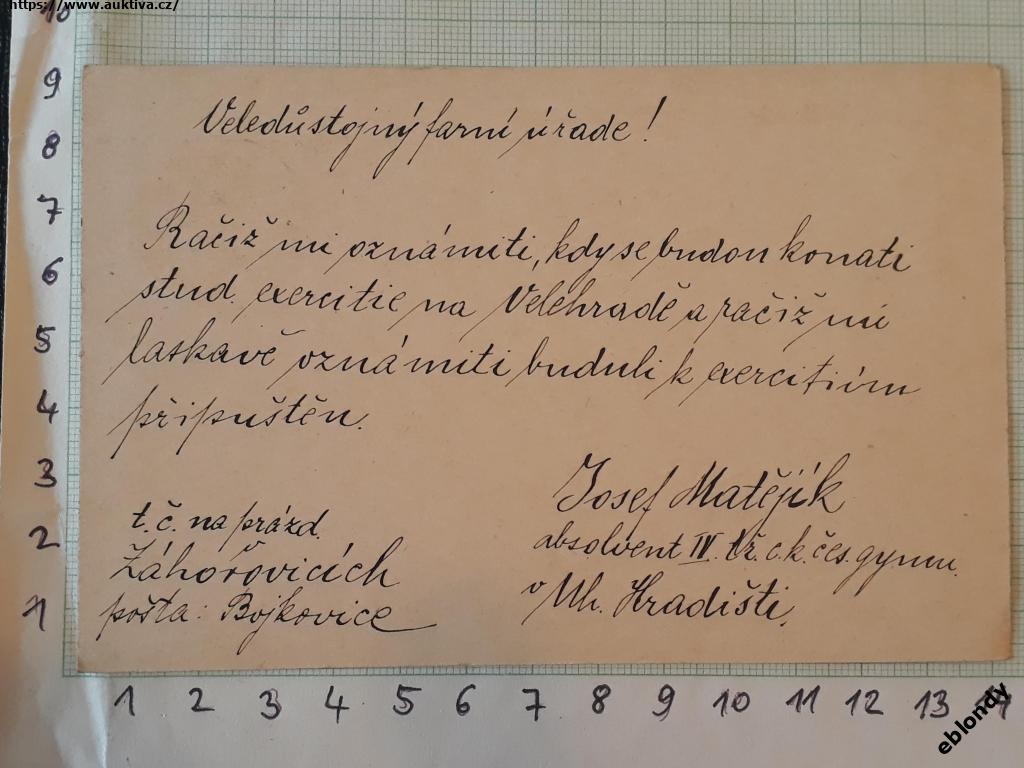 https://www.auktiva.cz/
Veledůstojný farní úřade!
Račiž mi oznámiti, kdy se budou konati
stud. exercitie na Velehradě a račiž mi
laskavě oznámiti buduli k exercitiím
připuštěn.
Josef Matějík
absolvent IV. tř. c. k. čes. gymn.
v Uh. Hradišti.
t. č. na prázd.
Záhořovicích
pošta: Bojkovice
10
9
8
7
6
5
4
3
2
1
1 2 3 4 5 6 7 8 9 10 11 12 13 14
eblondy